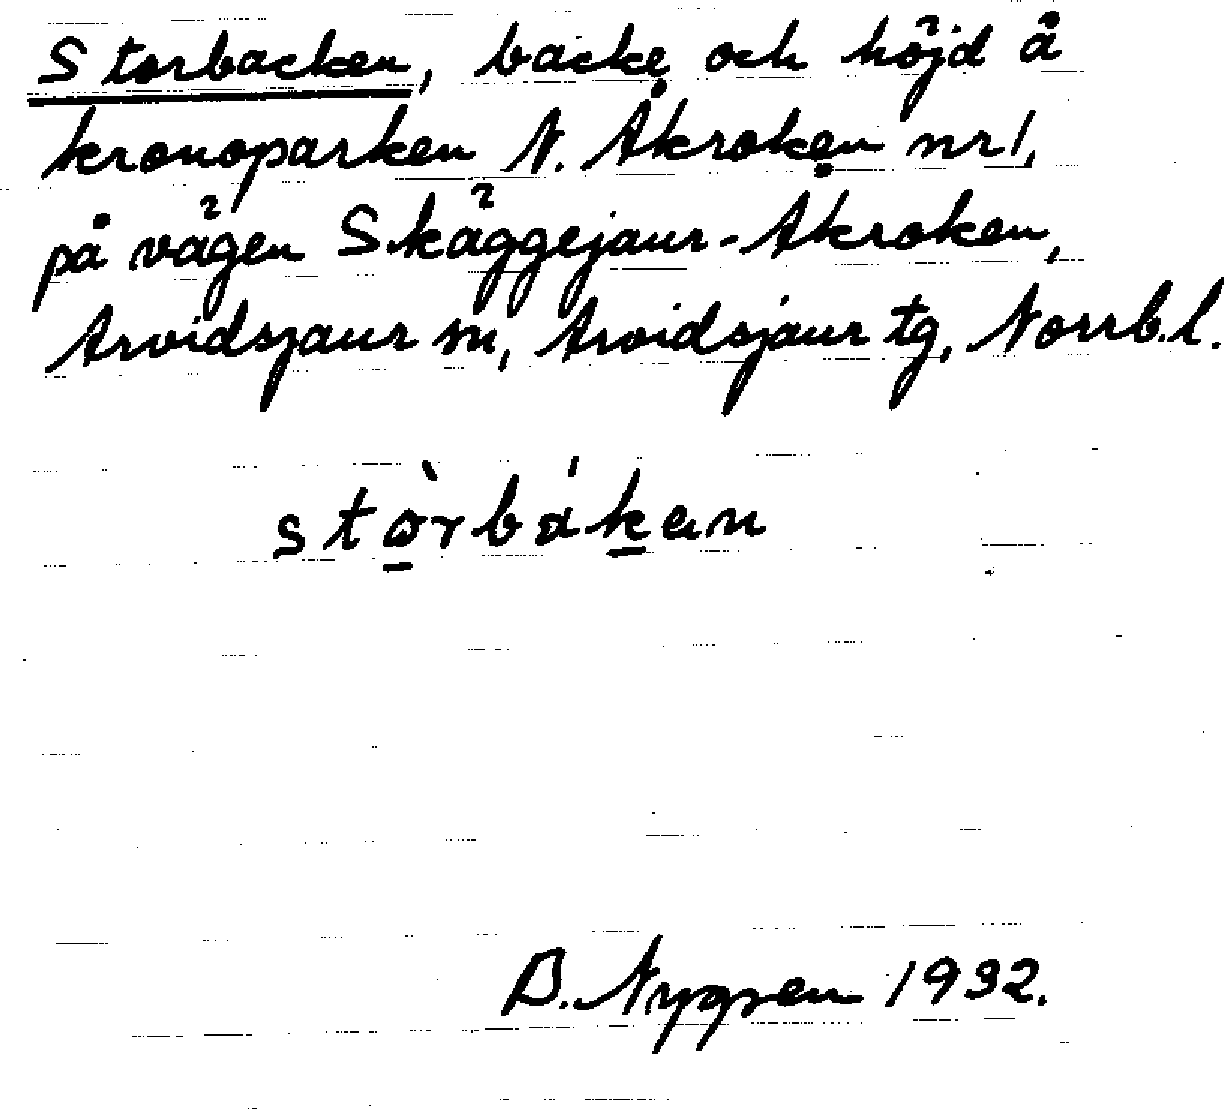 Storbacken, backe och höjd å
kronoparken N. Åkroken nr 1,
på vägen Skäggejaur-Åkroken,
Arvidsjaur sn, Arvidsjaur tg, Norrb.l.
stò̱rbáḵen
B. Nygren 1932.